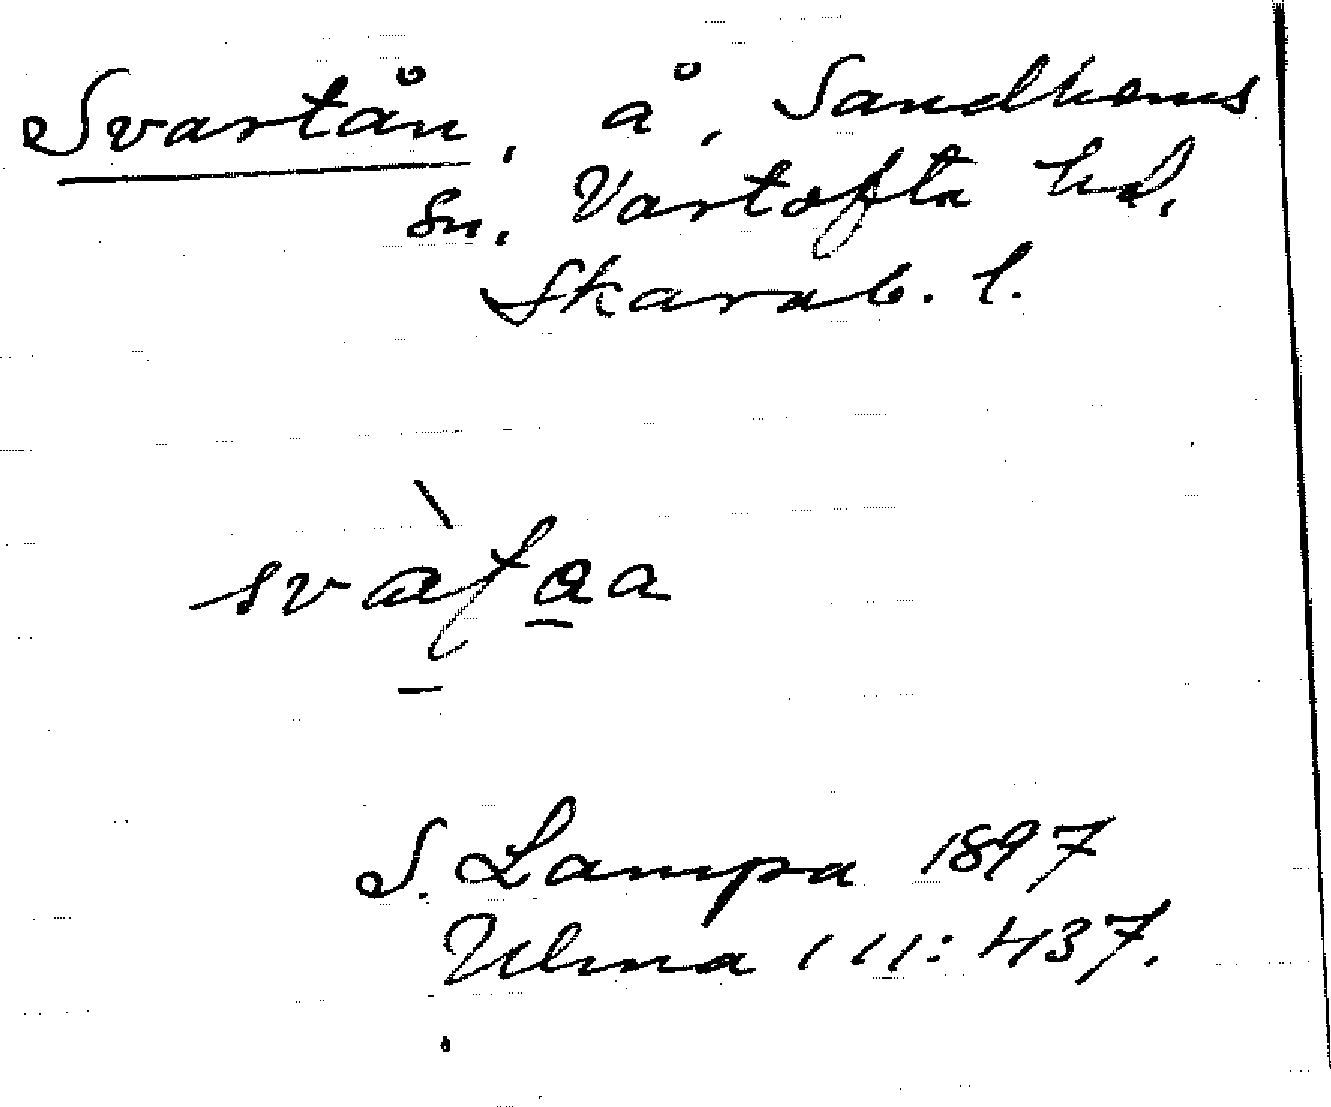 Svartån, å, Sandhems
sn, Vartofta hd,
Skarab. l.
S. Lampa 1897
Ulma 111:437.